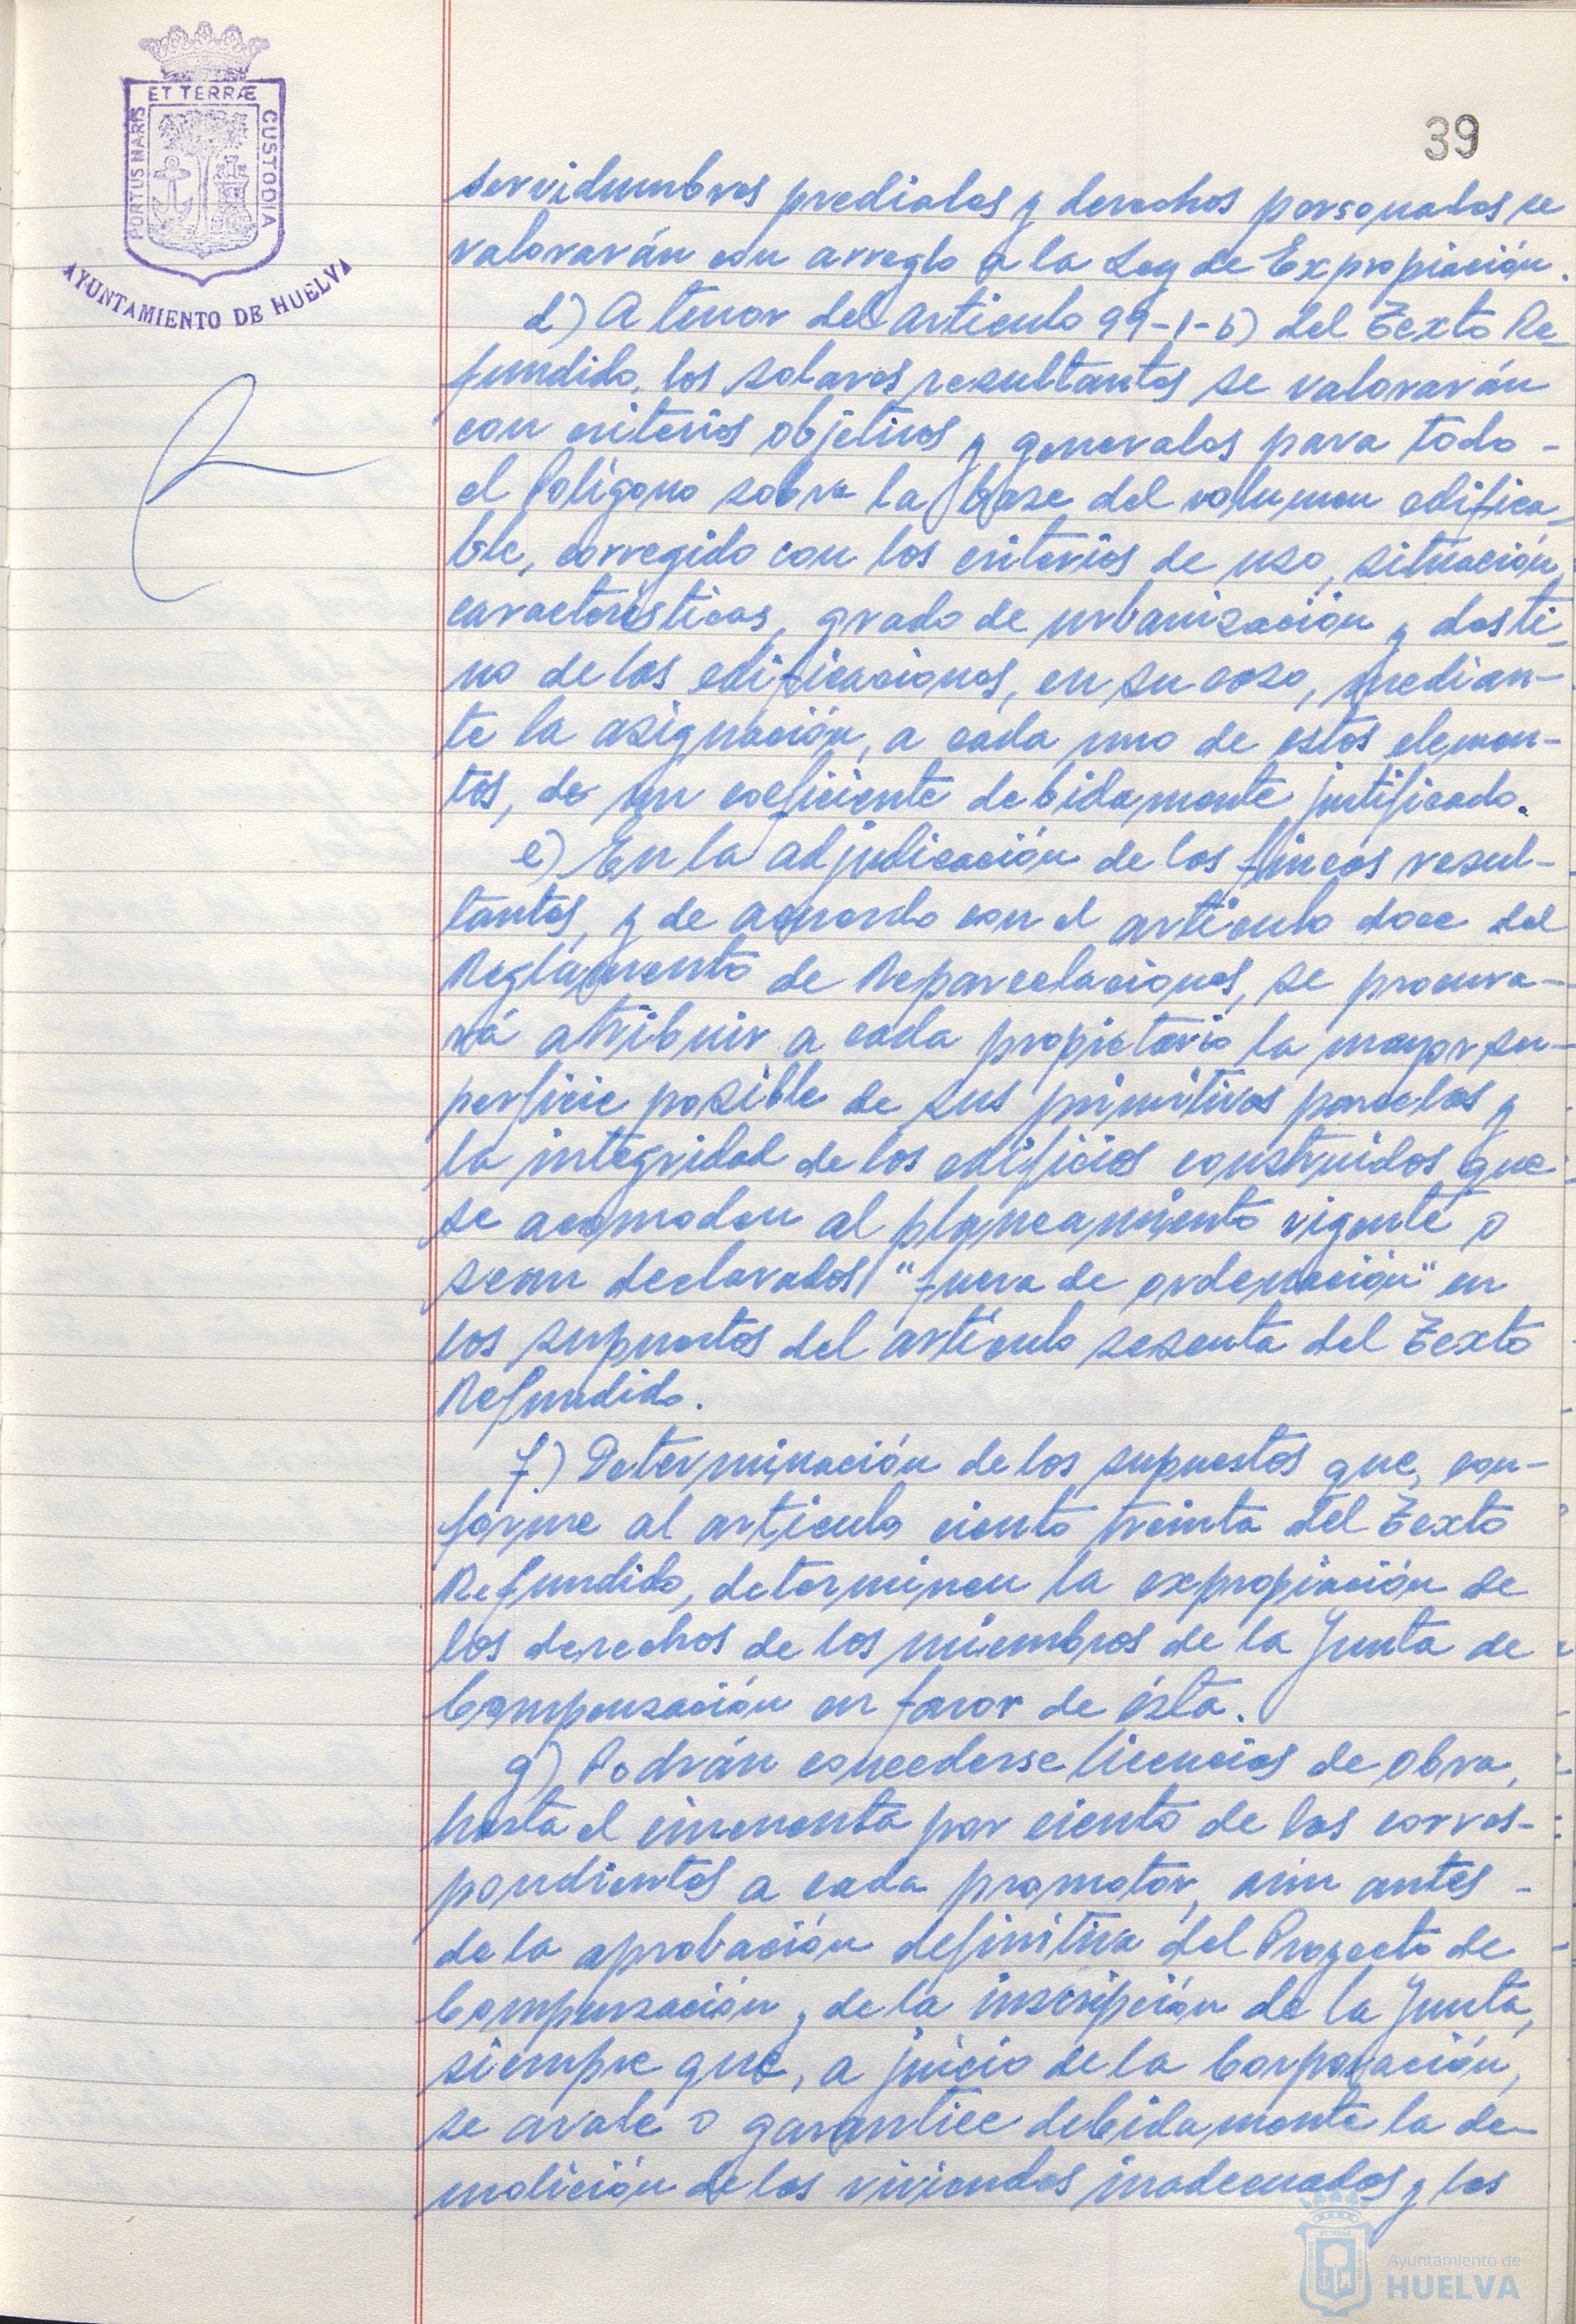 ET TERRÆ
PORTUS MARIS
CUSTODIA
AYUNTAMIENTO DE HUELVA
39
servidumbres prediales y derechos personales se
valorarán con arreglo a la Ley de Expropiación.
d) A tenor del artículo 99-1-b) del Texto Re-
fundido, los solares resultantes se valorarán
con criterios objetivos y generales para todo -
el Polígono sobre la base del volumen edifica-
ble, corregido con los criterios de uso, situación,
características, grado de urbanización y desti-
no de las edificaciones, en su caso, median-
te la asignación, a cada uno de estos elemen-
tos, de un coeficiente debidamente justificado.
e) En la adjudicación de las fincas resul-
tantes, y de acuerdo con el artículo doce del
Reglamento de Reparcelaciones, se procura-
rá atribuir a cada propietario la mayor su-
perficie posible de sus primitivas parcelas y
la integridad de los edificios construidos que
se acomoden al planeamiento vigente o
sean declarados "fuera de ordenación" en
los supuestos del artículo sesenta del Texto
Refundido.
f) Determinación de los supuestos que, con-
forme al artículo ciento treinta del Texto
Refundido, determinen la expropiación de
los derechos de los miembros de la Junta de
Compensación en favor de ésta.
g) Podrán concederse licencias de obra,
hasta el cincuenta por ciento de las corres-
pondientes a cada promotor, aún antes -
de la aprobación definitiva del Proyecto de
Compensación y de la inscripción de la Junta,
siempre que, a juicio de la Corporación,
se avale o garantice debidamente la de-
molición de las viviendas inadecuadas y las
Ayuntamiento de
HUELVA